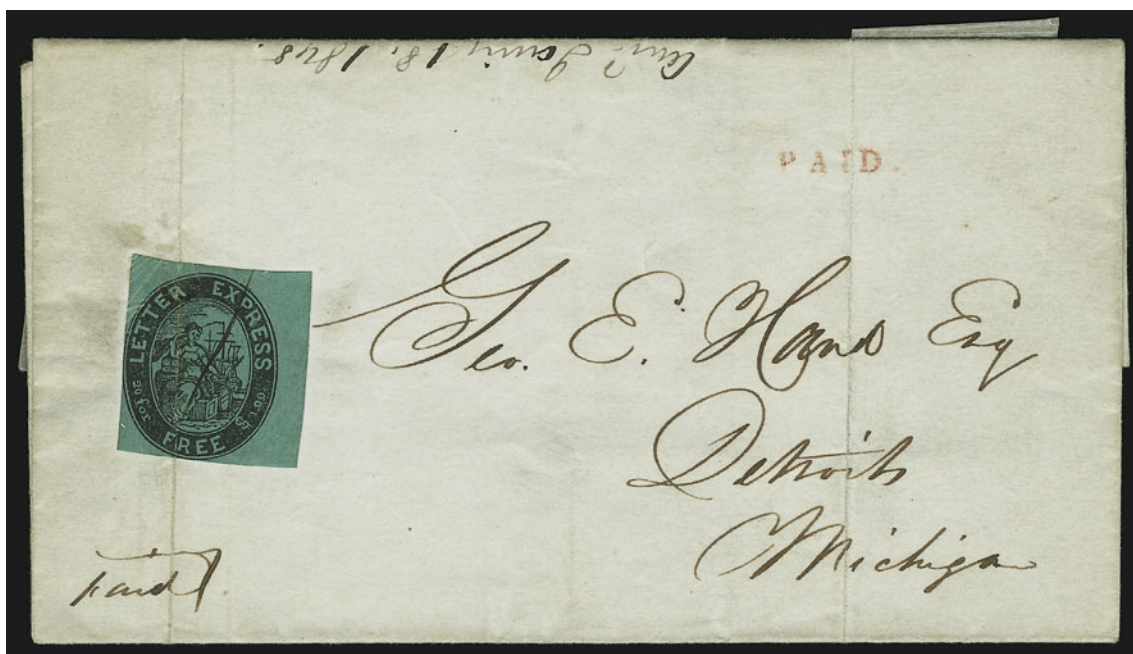 1848.
PAID.
LETTER EXPRESS
20 for $1.00
FREE
Geo. E. Hand Esq
Detroit
Michigan
Paid